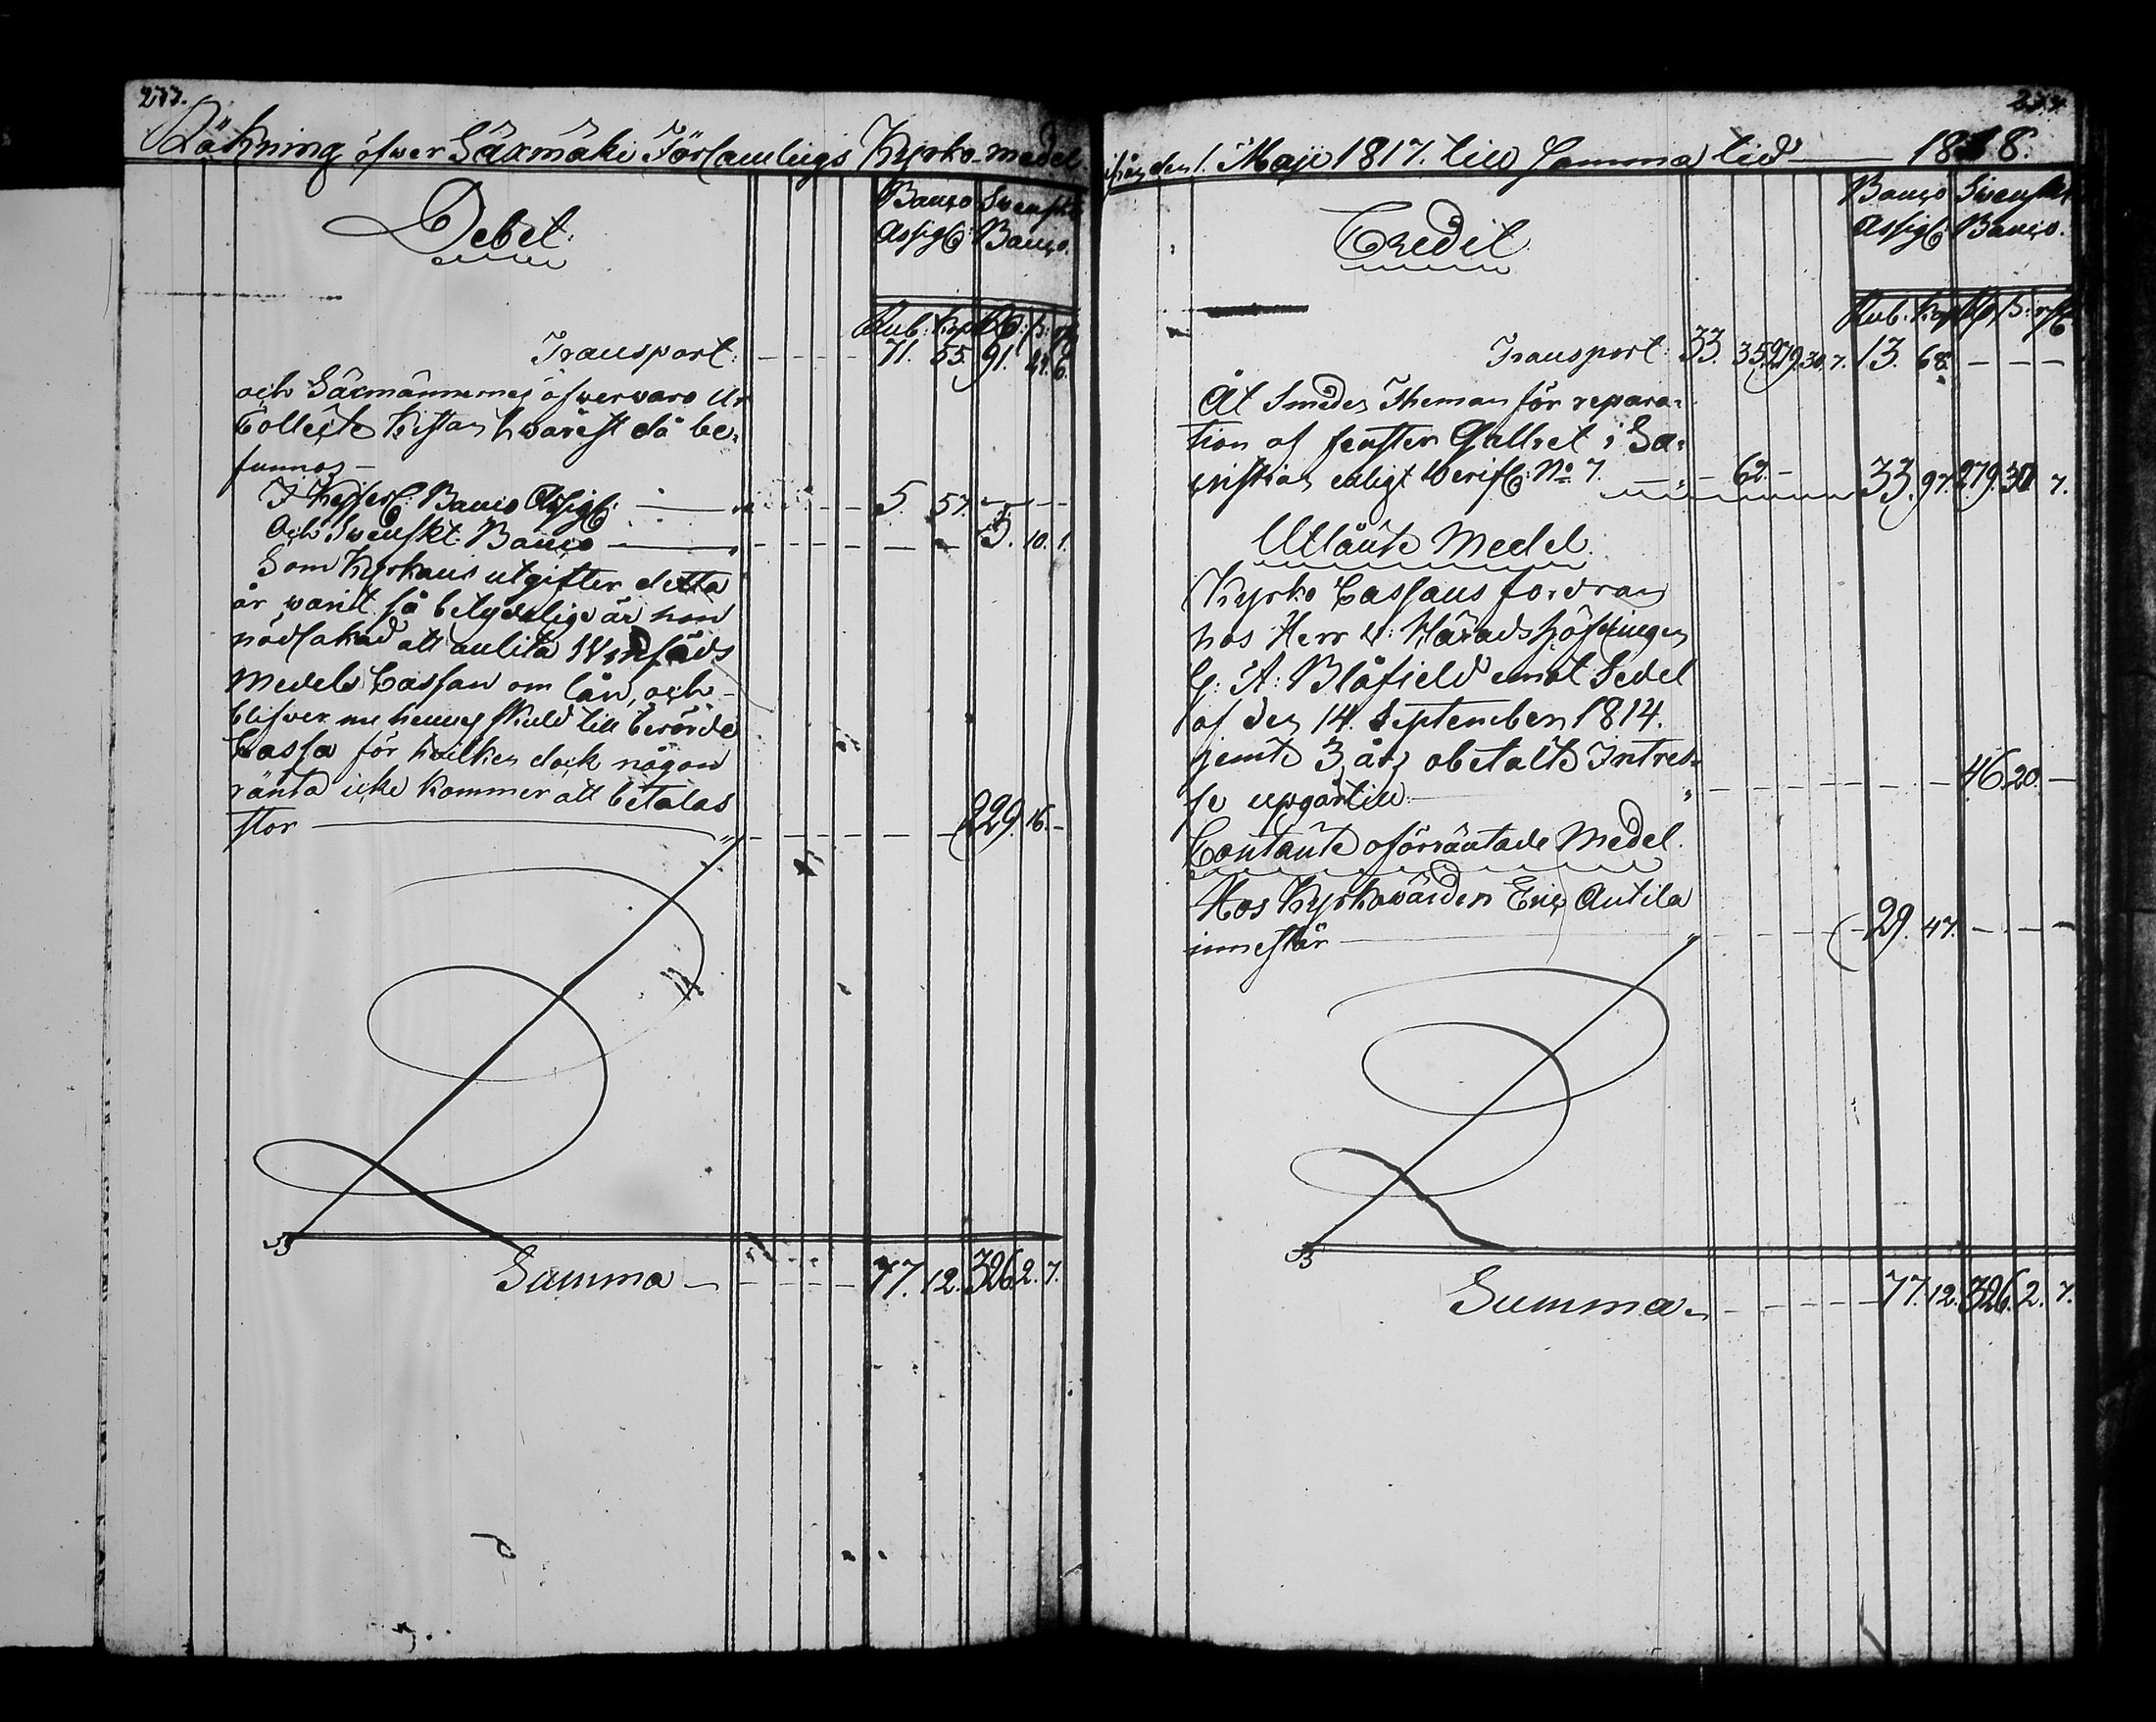 277.
Räkning öfwer Säxmäki Församlings Kyrko-medel
Debet.
Banco Swenskt
Assigt: Banco.
Rub: Kop: Rd: ß: rst
Transport: 71. 55. 91. 24. 6.
och Säxmännernes öfwerwaro ur
Collecte Kistan hwarest då be-
funnos –
I Kejserl: Banco Assigt: 5. 57. – – –
Och Swenskt Banco – – 5. 10. 1.
Som Kyrkans utgifter detta
år warit så betydelige är hon
nödsakad att anlita Winsäds
Medels Cassan om lån, och
blifver nu hennes skuld till berörde
Cassa för hvilken dock någon
ränta icke kommer att betalas
stor – – 229. 16. –
Summa – 77. 12. 326. 2. 7.
ifrån den 1. Maji 1817. till Samma tid — 1818.
Credit
Banco Swenskt
Assigt: Banco.
Rub: Kop: Rd: ß: rst
Transport: 33. 35. 279. 30. 7. 13. 68. – – –
Åt Smeden Theman för repara-
tion af fenster Gallret i Sa-
cristian enligt Verific: No 7. – 62. – 33. 97. 279. 30. 7.
Utlånte Medel.
Kyrko Cassans fordran
hos Herr v: Häradshöfdingen
G: A: Blåfield emot Sedel
af den 14. September 1814.
jemte 3 års obetalte Intres-
se upgår till: 46. 20. –
Contante oförräntade Medel.
Hos Kyrkowärden Eric Antila
innestår – 29. 47. – – –
Summa – 77. 12. 326. 2. 7.